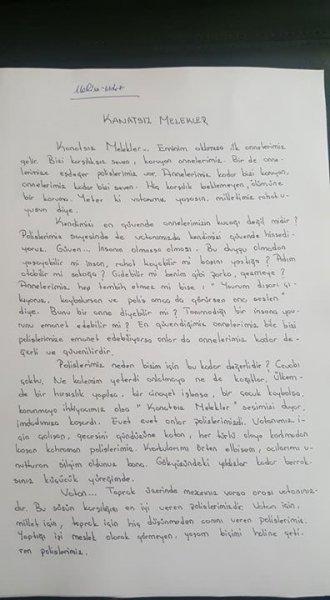 KANATSIZ MELEKLER
Kanatsız Melekler... Eminim aklınıza ilk annelerimiz
gelir. Bizi karşılıksız seven, koruyan annelerimiz. Bir de anne-
lerimize eşdeğer polislerimiz var. Annelerimiz kadar bizi koruyan,
annelerimiz kadar bizi seven. Hiç karşılık beklemeyen, ölümüne
bir koruma. Yeter ki vatanımız yaşasın, milletimiz rahat u-
yusun diye.
Kendimizi en güvende annelerimizin kucağı değil midir?
Polislerimiz sayesinde de vatanımızda kendimizi güvende hissedi-
yoruz. Güven... İnsana olmazsa olmazı. Bu duygu olmadan
yaşayabilir mi insan, rahat koyabilir mi başını yastığa? Adım
atabilir mi sokağa? Gidebilir mi benim gibi parka, gezmeye?
Annelerimiz hep tembih etmez mi bize; "Yavrum dışarı çı-
kıyorsun, kaybolursan ve polis amca da görürsen ona seslen
diye. Bunu bir anne diyebilir mi? Tanımadığı bir insana yav-
runu emanet edebilir mi? En güvendiğimiz annelerimiz bile bizi
polislerimize emanet edebiliyorsa onlar da annelerimiz kadar de-
ğerli ve güvenilirdir.
Polislerimiz neden bizim için bu kadar değerlidir? Cevabı
çoktu, Ne kalemim yeterdi anlatmaya ne de kağıtlar. Ülkem-
de bir hırsızlık yapılsa, bir cinayet işlense, bir çocuk kaybolsa,
korunmaya ihtiyacımız olsa "Kanatsız Melekler" sesimizi duyar,
imdadımıza koşardı. Evet evet onlar polislerimizdi. Vatanımız i-
çin çalışan, gecesini gündüzüne katan, her türlü olaya korkmadan
koşan kahraman polislerimiz. Korkularımı örten elbisem, acılarımı u-
nutturan bilgim oldunuz bana. Gökyüzündeki yıldızlar kadar berrak-
sınız küçücük yüreğimde.
Vatan... Toprak üzerinde mezarınız varsa orası vatanınız-
dır. Bu sözün karşılığını en iyi veren polislerimizdir. Vatan için,
millet için, toprak için hiç düşünmeden canını veren polislerimiz.
Yaptığı işi meslek olarak görmeyen, yaşam biçimi haline geti-
ren polislerimiz.